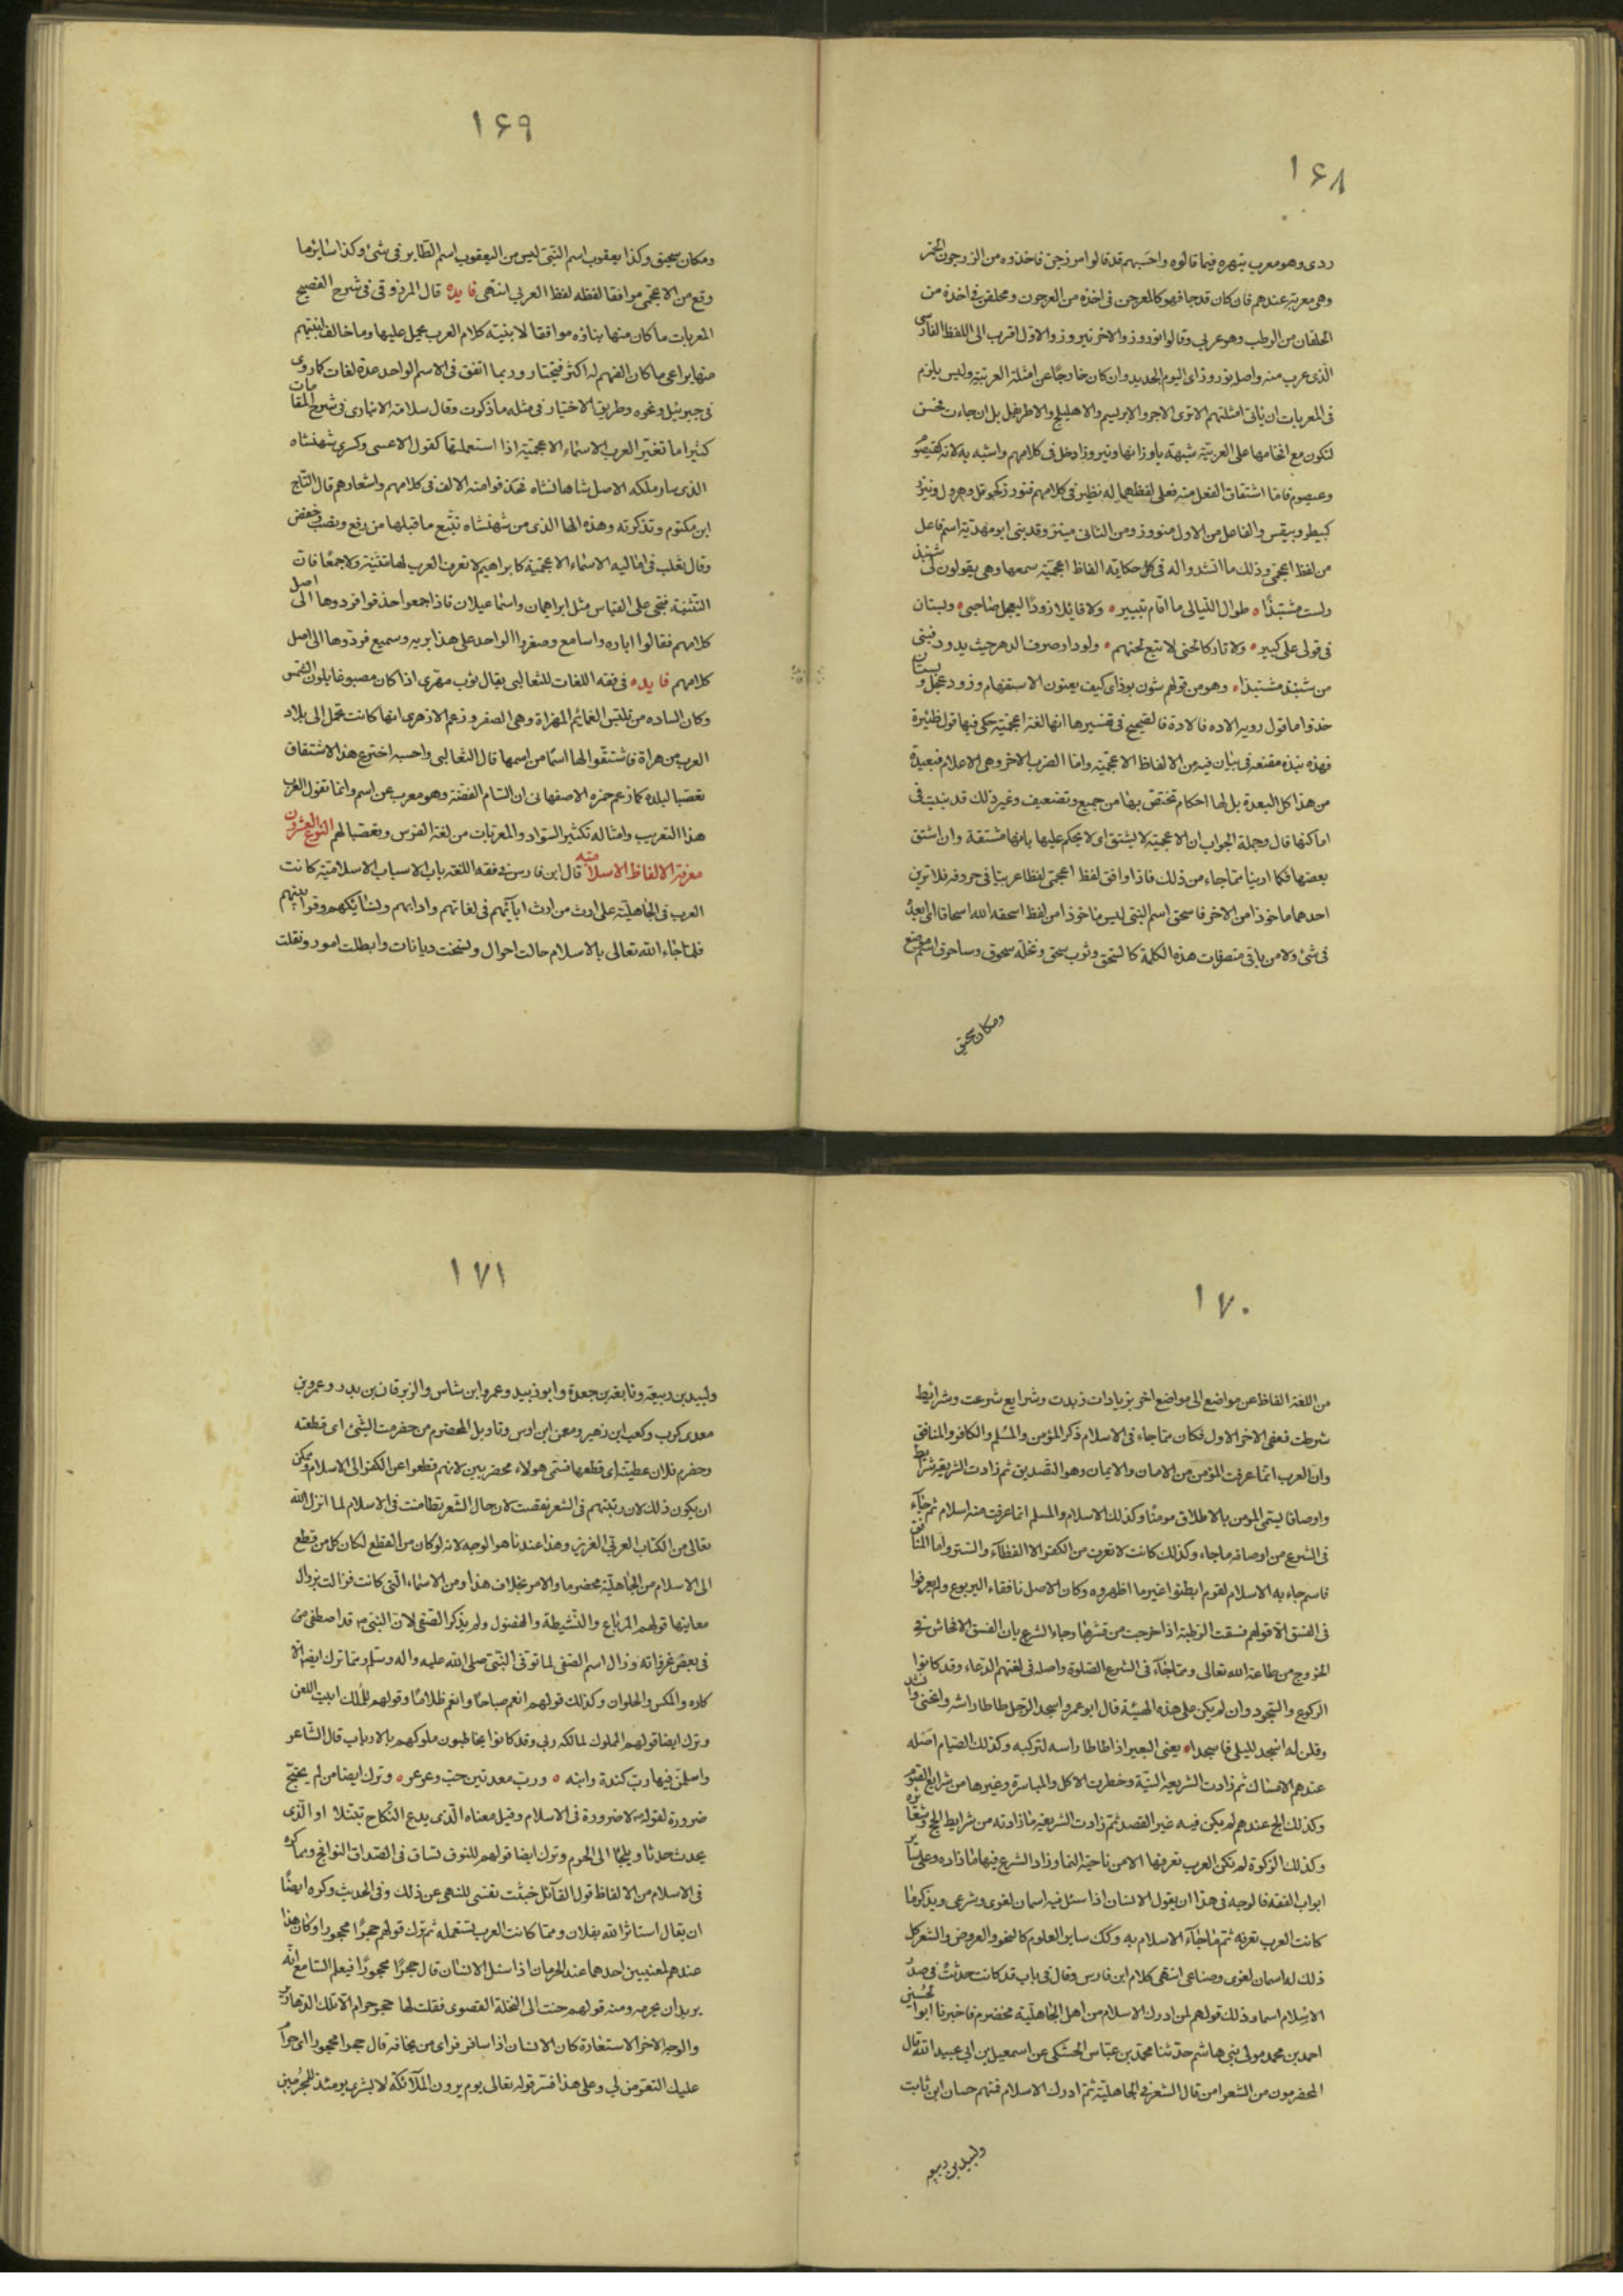 ١۶٨
ردى وهو معرب بنهره فيما قالوه واحسبهم قد قالوا مزرجن فاخذوه من الزرجون الخمر
وهى معربة عندهم فان كان قد جا فهو كالمعرجن فى اخذه من العرجون ومحلقن فى اخذه من
الحلقان من الرطب وهو عربى وقالوا نوروز والاخر نيروز والاول اقرب الى اللفظ الفارسى
الذى عرب منه واصله نوروز اى اليوم الجديد وان كان خارجًا عن امثلة العربية وليس يلزم
فى المعربات ان ياتى امثلتهم الا ترى الاجر والابريسم والاهليلج والاطريفل بل ان جاءت فحسن
لتكون مع اقحامها على العربية شبهة باوزانها ونيروز ادخل فى كلامهم واشبه به لانه كقيصوم
وعيصوم فاما اشتقاق الفعل منه فعلى لفظهما له نظير فى كلامهم فنورز كحوقل وهرول ونيرز
كبيطر وبيقر والفاعل من الاول منورز ومن الثانى مينرز وقد بنى ابو مهدية اسم فاعل
من لفظ اعجمى وذلك ما انشدوا له فى كل حكاية الفاظ اعجمية سمعها وهى يقولون لى شنبذ
ولست مشنبذًا ه طوال الليالى ما اقام ثبير ه ولا قائلا زودًا ليعجل صاحبى ه وبستان
فى قولى على كبير ه ولا تاركا لحنى لا تبع لحنهم ه ولو دار صرف الدهر حيث يدور فبنى
من شنبذ مشنبذا ه وهو من قولهم شون بوذ اى كيف يعنون الاستفهام وزود عجل وبستان
خذ واما قول رويه الاده فالاده فالصحيح فى تفسيرها انها لغة اعجمية حكى فيها قول ظئيرة
فهذه نبذه مقنعة فى بيان فيه من الالفاظ الاعجمية واما الضرب الاخر وهى الاعلام فبعيدة
من هذا كل البعدة بل لها احكام تختص بها من جميع وتضعيف وغير ذلك قد بنيت فى
اماكنها قال وجلة الجواب ان الاعجمية لا يشتق اى لا يحكم عليها بانها مشتقة وان اشتق
بعضها فكما ارينا مما جاء من ذلك فاذا وافق لفظ اعجمى لفظا عربيا فى حروفه فلا ترين
احدهما ماخوذا من الاخر فاسحق اسم النبى ليس ماخوذا من لفظ اسحقه الله اسحاقا اى ابعده
فى شئ ولا من باقى متصرفات هذه الكلمة كالسحق وثوب سحق ونخلة سحوق وساحوق اسم موضع
ومكان سحيق
١۶٩
ومكان سحيق وكذا يعقوب اسم النبى ليس من اليعقوب اسم الطاير فى شئ وكذا سائر ما
وقع من الاعجمى موافقا لفظه لفظ العربى انتهى فايده قال المرزوقى فى شرح الفصيح
المعربات ما كان منها بناؤه موافقا لابنية كلام العرب يحمل عليها وما خالف ابنيتهم
منها يراعى ما كان الفهم له اكثر فيختار وربما اتفق فى الاسم الواحد عدة لغات كما روى
فى جبرئيل ونحوه وطريق الاختيار فى مثله ما ذكرت وقال سلامة الانبارى فى شرح المقامات
كثيرا ما تغير العرب الاسماء الاعجمية اذا استعملتها كقول الاعشى وكسرى شهنشاه
الذى سار ملكه الاصل شاهانشاه فحذفوا منه الالف فى كلامهم واشعارهم قال التاج
ابن مكتوم وتذكرته وهذه الها الذى من شهنشاه تتبع ما قبلها من رفع ونصب خفض
وقال ثعلب فى اماليه الاسماء الاعجمية كابراهيم لا تعرف العرب لها تثنية ولا جمعًا فان
التثنية فتجى على القياس مثل ابراهيمان واسماعيلان فاذا جمعوا حذفوا فردوها الى اصل
كلامهم فقالوا اباره واسامع وصغروا الواحد على هذا بريه وسميع فردوها الى اصل
كلامهم فايده فى فقه اللغات للثعالبى يقال ثوب مهرى اذا كان مصبوغا بلون الشمس
وكان الساده من تلبس العمائم المهراة وهى الصفر وزعم الازهرى انها كانت تحمل الى بلاد
العرب من هراة فاشتقوا لها اسمًا من اسمها قال الثعالبى واحسبه اخترع هذا الاشتقاق
تعصبا لبلده كما زعم حمزه الاصفهانى ان السام الفضة وهو معرب عن اسم وانما تقول العرب
هذا التعريب وامثاله تكثير السواد والمعربات من لغة الفرس وتعصبا لهم النوع العشرون
معرفة الالفاظ الاسلامية قال ابن فارس فى فقه اللغة باب الاسباب الاسلامية كانت
العرب فى الجاهلية على ارث من ارث ابآئهم فى لغاتهم وادابهم ونسائكهم وقرابينهم
فلما جاء الله تعالى بالاسلام حالت احوال ونسخت ديانات وابطلت امور ونقلت
١٧٠
من اللغة الفاظ عن مواضع الى مواضع اخر بزيادات زيدت وشرايع شرعت وشرائط
شرطت فعفى الاخر الاول فكان مما جاء فى الاسلام ذكر المؤمن والمسلم والكافر والمنافق
وان العرب انما عرفت المؤمن من الامان والايمان وهو التصديق ثم زادت الشريعة شرائط
واوصافا يسمى المؤمن بالاطلاق مومنًا وكذلك الاسلام والمسلم انما عرفت منه اسلام ثم جآء
فى الشرع من اوصافه ما جاء وكذلك كانت لا تعرف من الكفر الا الغطآء والستر واما المنافق
فاسم جاء به الاسلام لقوم ابطنوا غير ما اظهروه وكان الاصل نافقاء اليربوع ولم يعرفوا
فى الفسق الا قولهم فسقت الرطبة اذا خرجت من قشرها وجاء الشرع بان الفسق الافحاش فى
الخروج من طاعة الله تعالى ومما جآء فى الشرع الصلوة واصله فى لغتهم الدعاء وقد كانوا
الركوع والسجود وان لم يكن على هذه الهيئة قال ابو عمرو اسجد الرجل طاطا راسه وانحنى وانشد
وقلن له اسجد لليلى فاسجدا ه يعنى البعير اذا طاطا راسه لتركبه وكذلك الصيام اصله
عندهم الامساك ثم زادت الشريعه النية وخطرت الاكل والمباسرة وغيرها من شرايع الصوم
وكذلك الحج عندهم لم يكن فيه غير القصد ثم زادت الشريعة ما زادته من شرايط الحج وشعائره
وكذلك الزكوة لم تكن العرب تعرفها الا من ناحية النما وزاد الشرع فيها ما زاده وعلى سائر
ابواب الفقه فالوجه فى هذا ان يقول الانسان اذا سئل فيه اسمان لغوى وشرعى ويذكر ما
كانت العرب تعرفه ثم ما جآء الاسلام به وكك ساير العلوم كالنحو والعروض والشعر كل
ذلك له اسمان لغوى وصناعى انتهى كلام ابن فارس وقال فى باب قد كانت حدثت فى صدر
الاسلام اسما وذلك قولهم لمن ادرك الاسلام من اهل الجاهلية مخضرم فاخبرنا ابو الحسين
احمد بن محمد مولى بنى هاشم حدثنا محمد بن عباس الخشكى عن اسمعيل بن ابى عبيد الله قال
المخضرمون من الشعرا من قال الشعر فى الجاهلية ثم ادرك الاسلام فمنهم حسان ابن ثابت
ولبيد بن ربيعه
١٧١
ولبيد بن ربيعة ونابغة بن جعدة وابو زبيد وعمرو ابن شاس والزبرقان بن بدر وعمرو بن
معدى كرب وكعب ابن زهير ومعن ابن اوس وتاويل المخضرم من خضرمت الشئ اى قطعته
وخضرم فلان عطيته اى قطعها فسمى هولاء مخضرمين لانهم قطعوا عن الكفر الى الاسلام وممكن
ان يكون ذلك لان رتبتهم فى الشعر نقصت لان حال الشعر تطامنت فى الاسلام لما انزل الله
تعالى من الكتاب العربى العزيز وهذا عندنا هو الوجه لانه لو كان من القطع لكان كل من قطع
الى الاسلام من الجاهلية مخضرما والامر بخلاف هذا ومن الاسماء التى كانت فزالت بزوال
معانيها قولهم المرباع والنشيطة والفضول ولم يذكر الصفى لان النبى ص قد اصطفى من
فى بعض غزواته وزال اسم الصفى لما توفى النبى صلى الله عليه واله وسلم ومما ترك ايضا الا
كاره والمكس والحلوان وكذلك قولهم انعم صباحا وانعم ظلامًا وقولهم للملك ابيت اللعن
وترك ايضا قولهم المملوك لمالكه ربى وقد كانوا يخاطبون ملوكهم بالارباب قال الشاعر
واسلمن فيها رب كندة وابنه ه ورب معد بين خبت وعرعر ه وترك ايضا من لم يحجج
ضرورة لقوله لا ضرورة فى الاسلام وقيل معناه الذى يدع النكاح تبتلا او الذى
يحدث حدثا ويلجأ الى الحرم وترك ايضا قولهم للنوق تساق فى الصداق النوافج ومما كره
فى الاسلام من الالفاظ قول القآئل خبثت نفسى للنهى عن ذلك وفى الحديث وكره ايضًا
ان يقال استاثر الله بفلان ومما كانت العرب تستعمله ثم ترك قولهم حجرًا محجورا وكان هذا
عندهم لمعنيين احدهما عند الحرمان اذا سئل الانسان قال حجرًا محجورًا فيعلم السامع انه
يريد ان يحرمه ومنه قولهم حنت الى النخلة القصوى فقلت لها حجر حرام الا تلك الدهاريس
والوجه الاخر الاستعاذة كان الانسان اذا سافر فراى من يخافه قال حجرا محجورا اى حرام
عليك التعرض لى وعلى هذا فسر قوله تعالى يوم يرون الملآئكة لا بشرى يومئذ للمجرمين